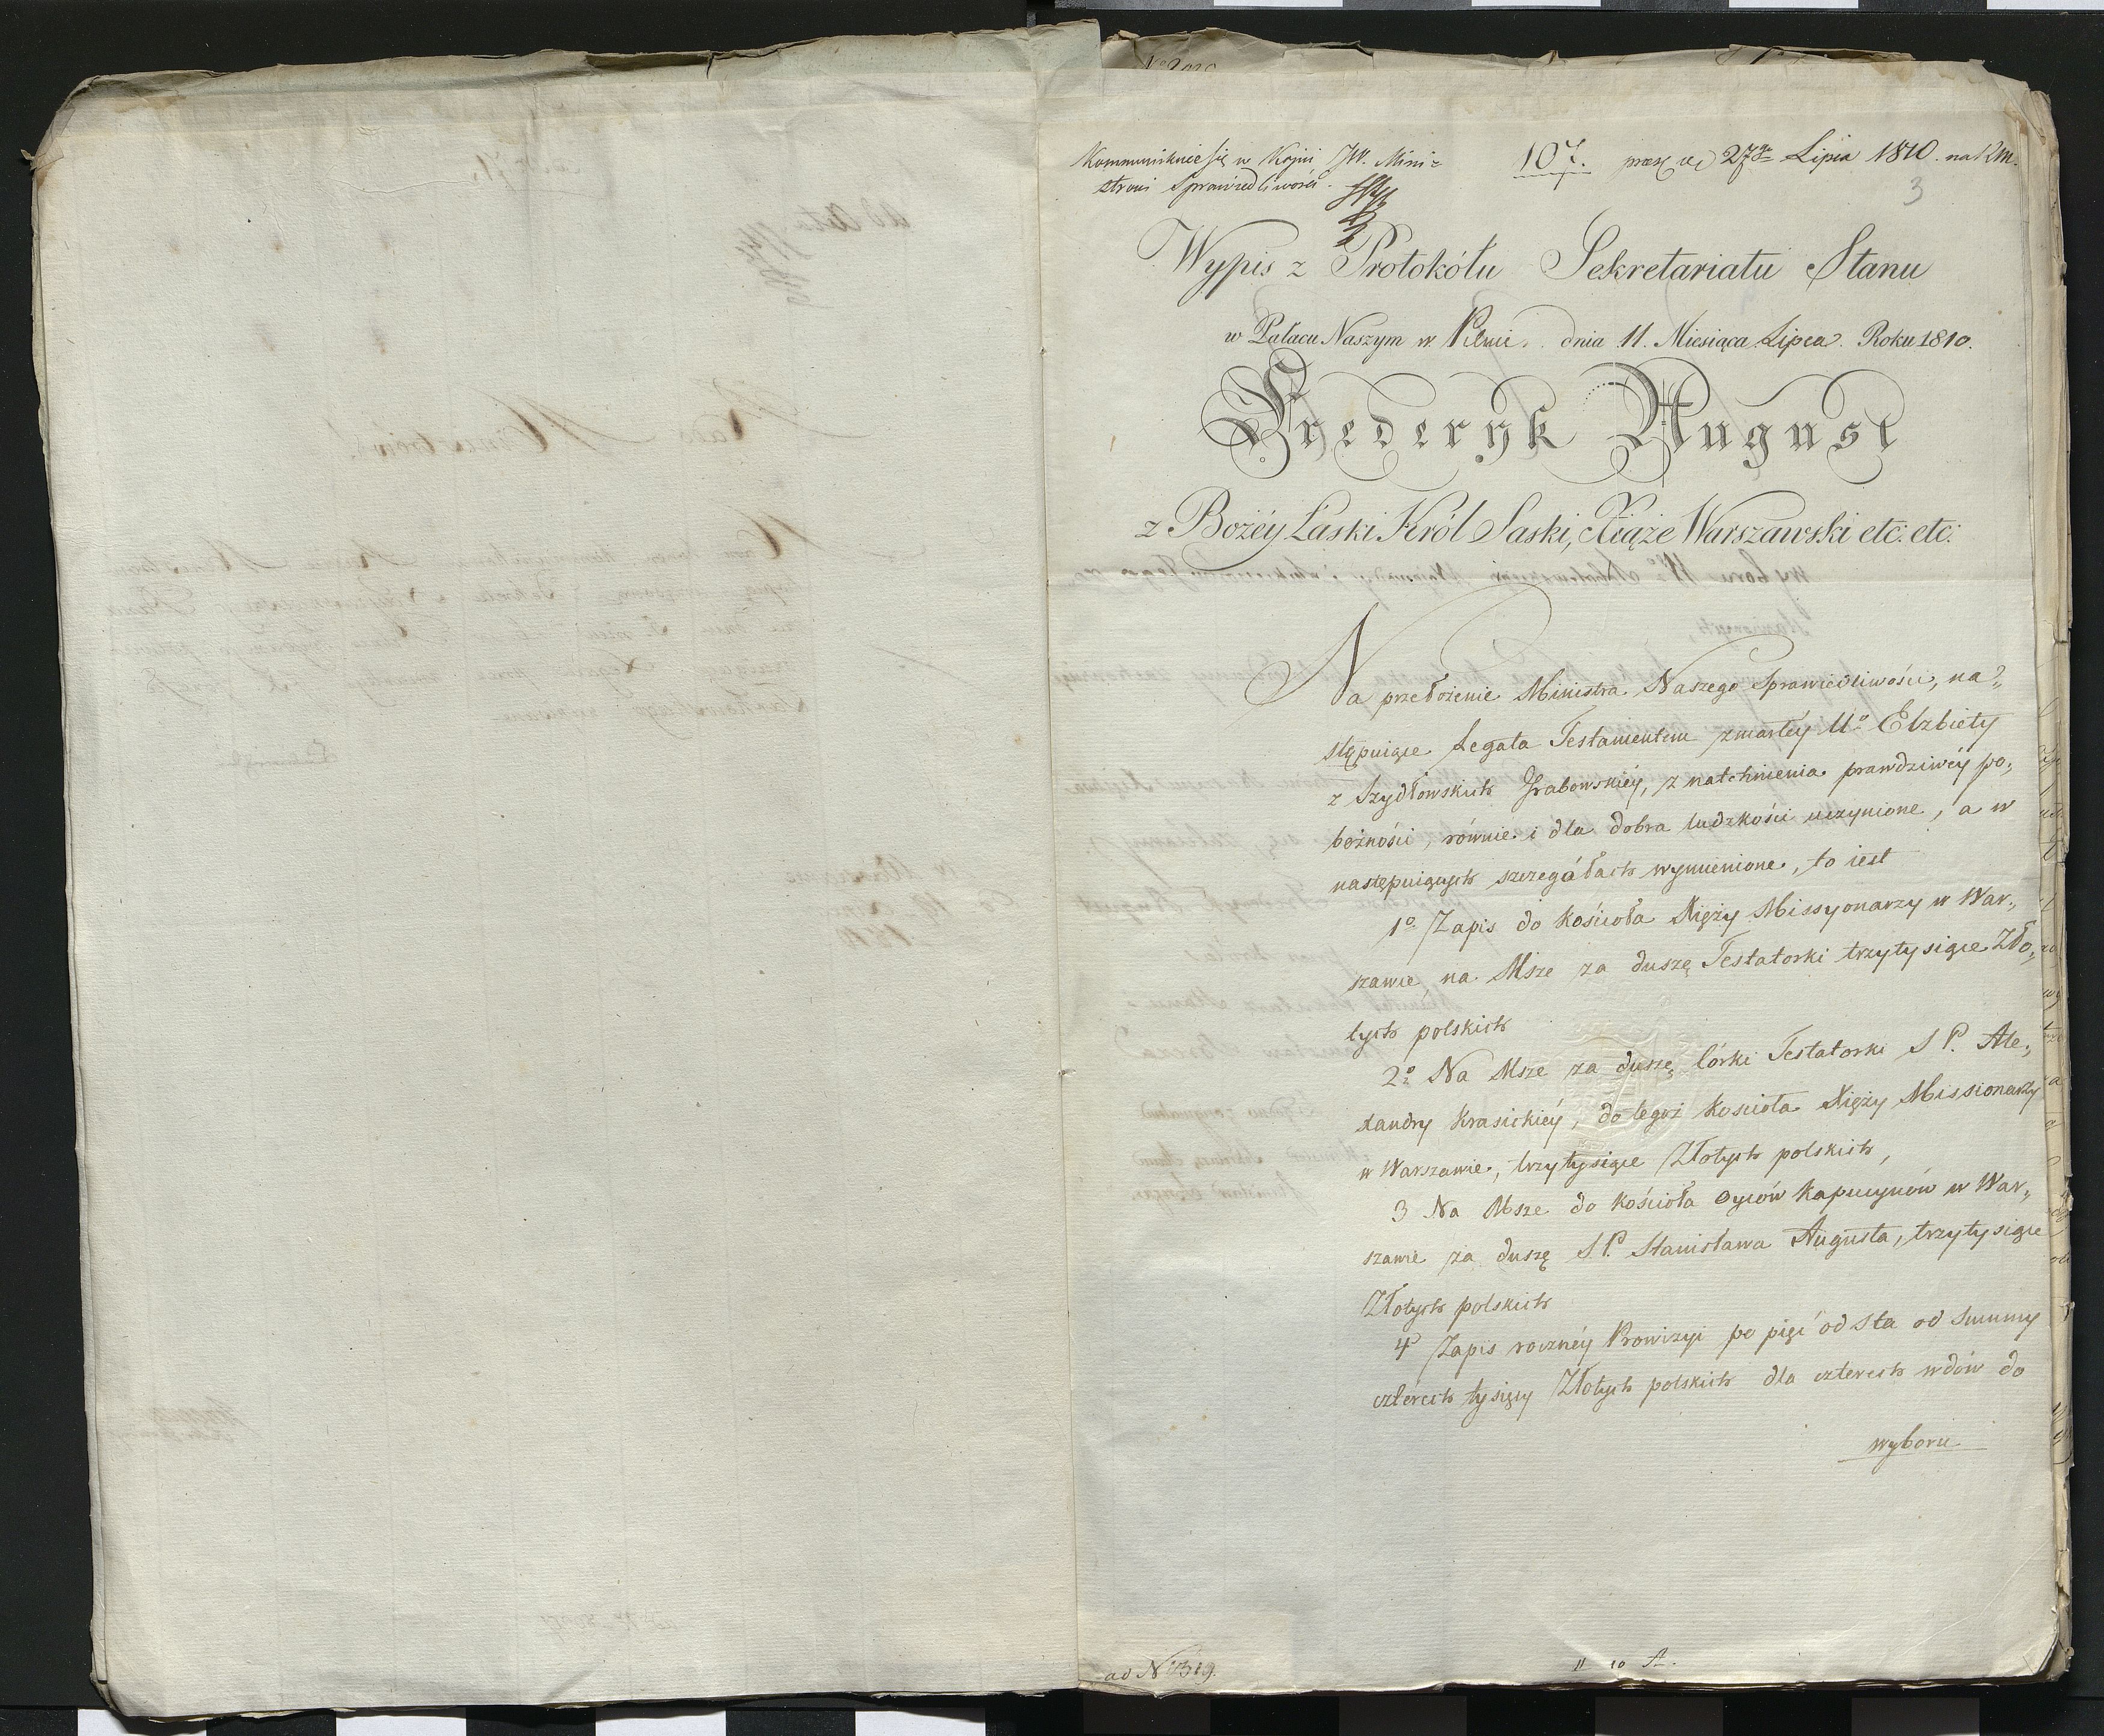 Kommunikuie się w Kopii JW. Mini=
strowi Sprawiedliwości.
107. 27go Lipca 1810. na RM.
3
Wypis z Protokółu Sekretariatu Stanu
w Pałacu Naszym w Pilnic. dnia 11. Miesiąca Lipca. Roku 1810.
Fryderyk August
z Bożéy Łaski Król Saski, Xiąże Warszawski etc: etc:
Na przełożenie Ministra Naszego Sprawiedliwości, na„
stępuiące Legata Testamentem zmarłéy Ur Elżbiety
z Szydłowskich Grabowskiéy, z natchnienia prawdziwéy po„
bożności, równie i dla dobra ludzkości uczynione, a w
następuiących szczegółach wymienione, to iest
1o Zapis do kościoła Xięży Missyonarzy w War„
szawie, na Msze za duszę Testatorki trzy tysiące Zło„
tych polskich
2o Na Msze za duszę Córki Testatorki S P. Ale„
xandry Krasickiéy, do tegoż kościoła Xięży Missionarzy
w Warszawie, trzy tysiące Złotych polskich,
3 Na Msze do kościoła Oyców Kapucynów w War„
szawie za duszę S P. Stanisława Augusta, trzy tysiące
Złotych polskich
4o Zapis roczney Prowizyi po pięć od sta od Summy
czterech tysięcy Złotych polskich dla czterech wdów do
wyboru
ad N 1319.
11 10 A.